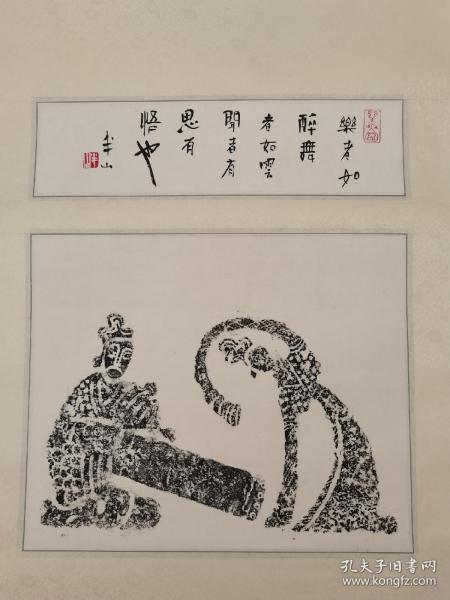 樂者如
醉舞
者如雲
聞者有
思有
悟也
半山
孔夫子旧书网
www.kongfz.com